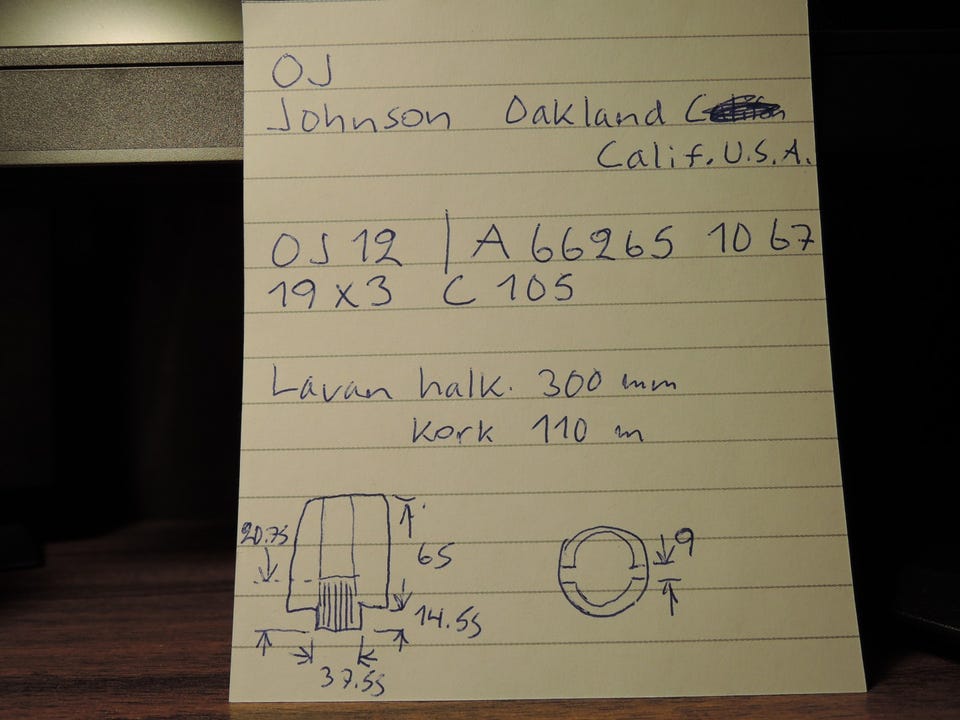 OJ
Johnson Oakland
Calif. U.S.A.
OJ 12 | A 66265 10 67
19 x 3 C 105
Lavan halk. 300 mm
kork 110 m
20.75
65
14.55
37.55
9